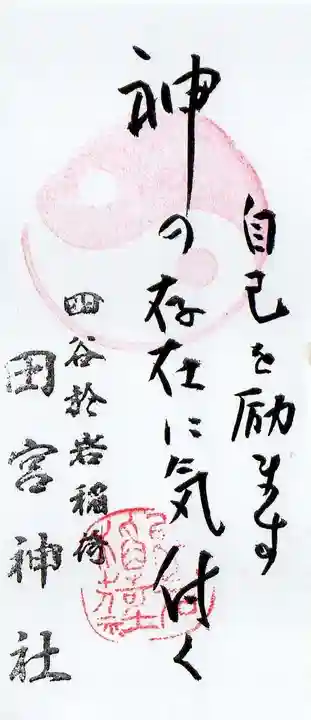 自己を励ます
神の存在に気付く
四谷於岩稲荷
田宮神社